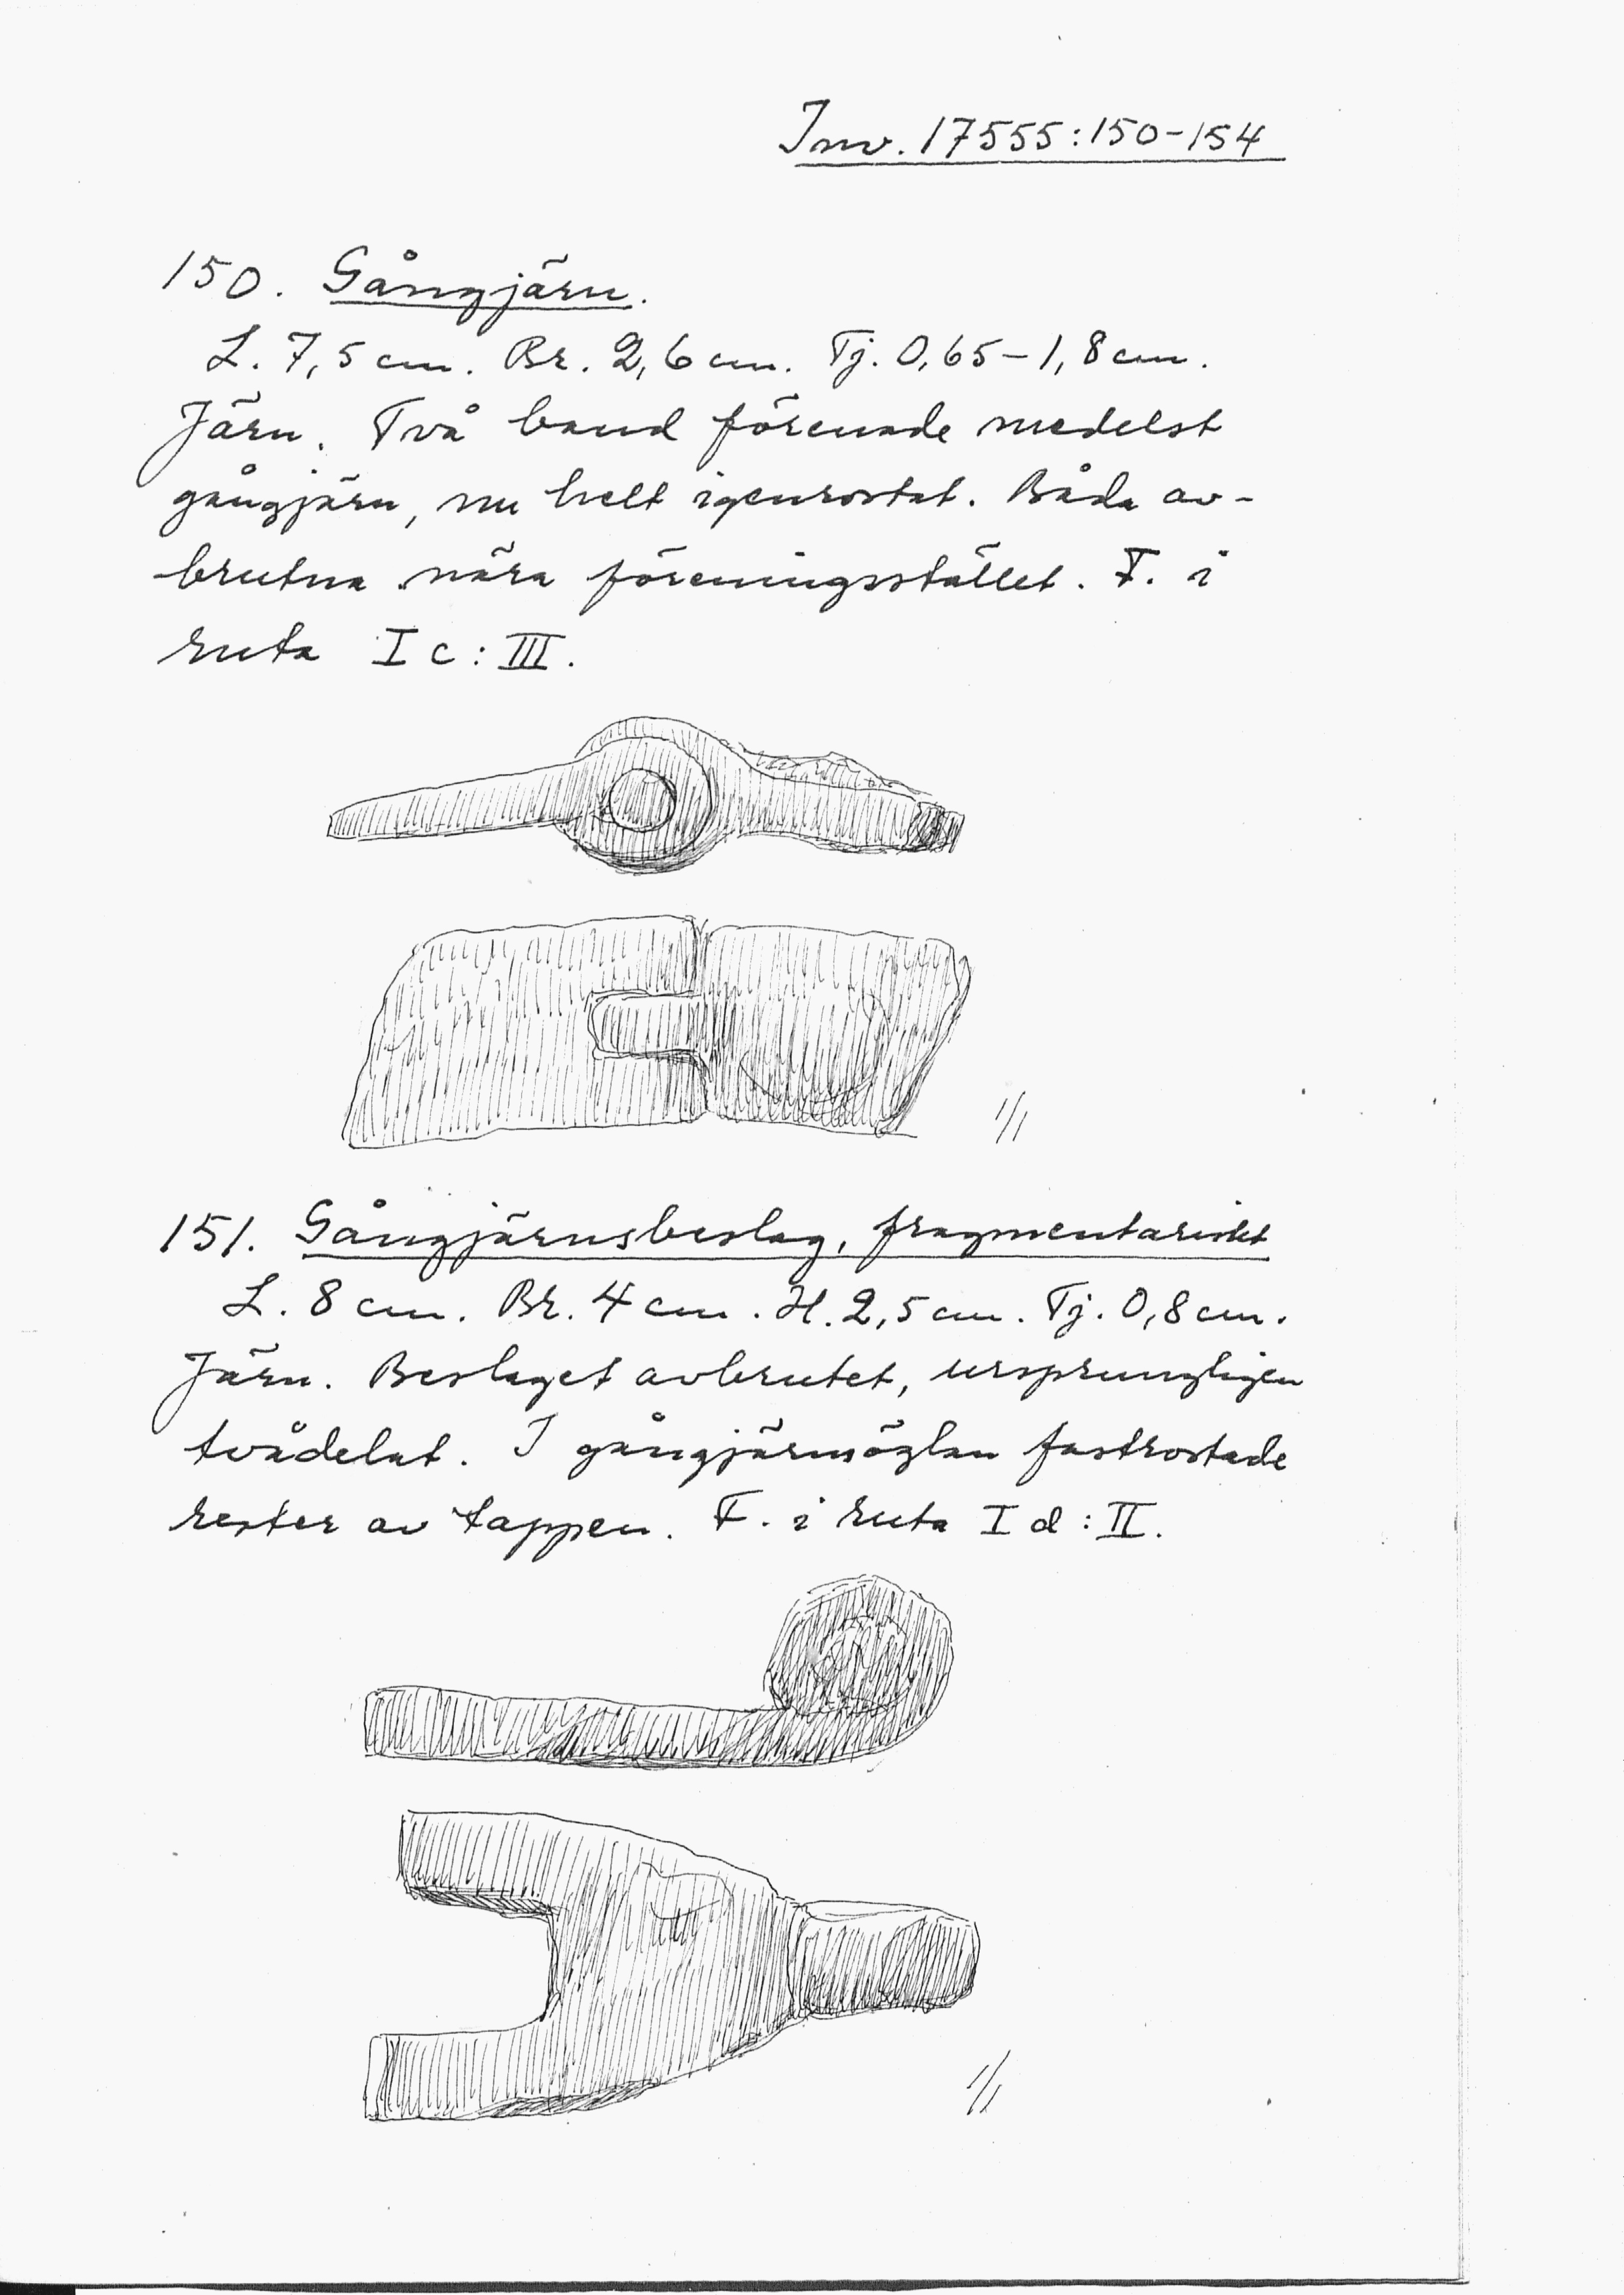 Inv. 17555:150-154
150. Gångjärn.
L. 7,5 cm. Br. 2,6 cm. Tj. 0,65-1,8 cm.
Järn. Två band förenade medelst
gångjärn, nu helt igenrostat. Båda av-
brutna nära föreningsstället. F. i
ruta I c: III.
1/1
151. Gångjärnsbeslag, fragmentariskt
L. 8 cm. Br. 4 cm. H. 2,5 cm. Tj. 0,8 cm.
Järn. Beslaget avbrutet, ursprungligen
tvådelat. I gångjärnsöglan fastrostade
rester av tappen. F. i ruta I d: II.
1/1